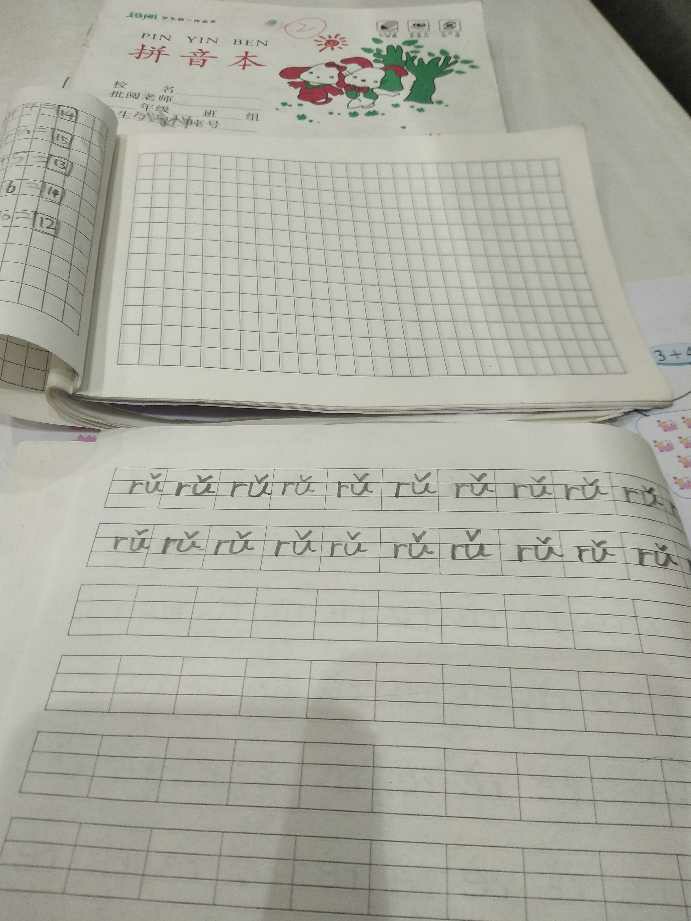 PIN YIN BEN
拼音本
校 名
批阅老师
年级 班 组
2
14
15
13
6 = 14
= 12
3+
rǔ rǔ rǔ rǔ rǔ rǔ rǔ rǔ rǔ rǔ
rǔ rǔ rǔ rǔ rǔ rǔ rǔ rǔ rǔ rǔ